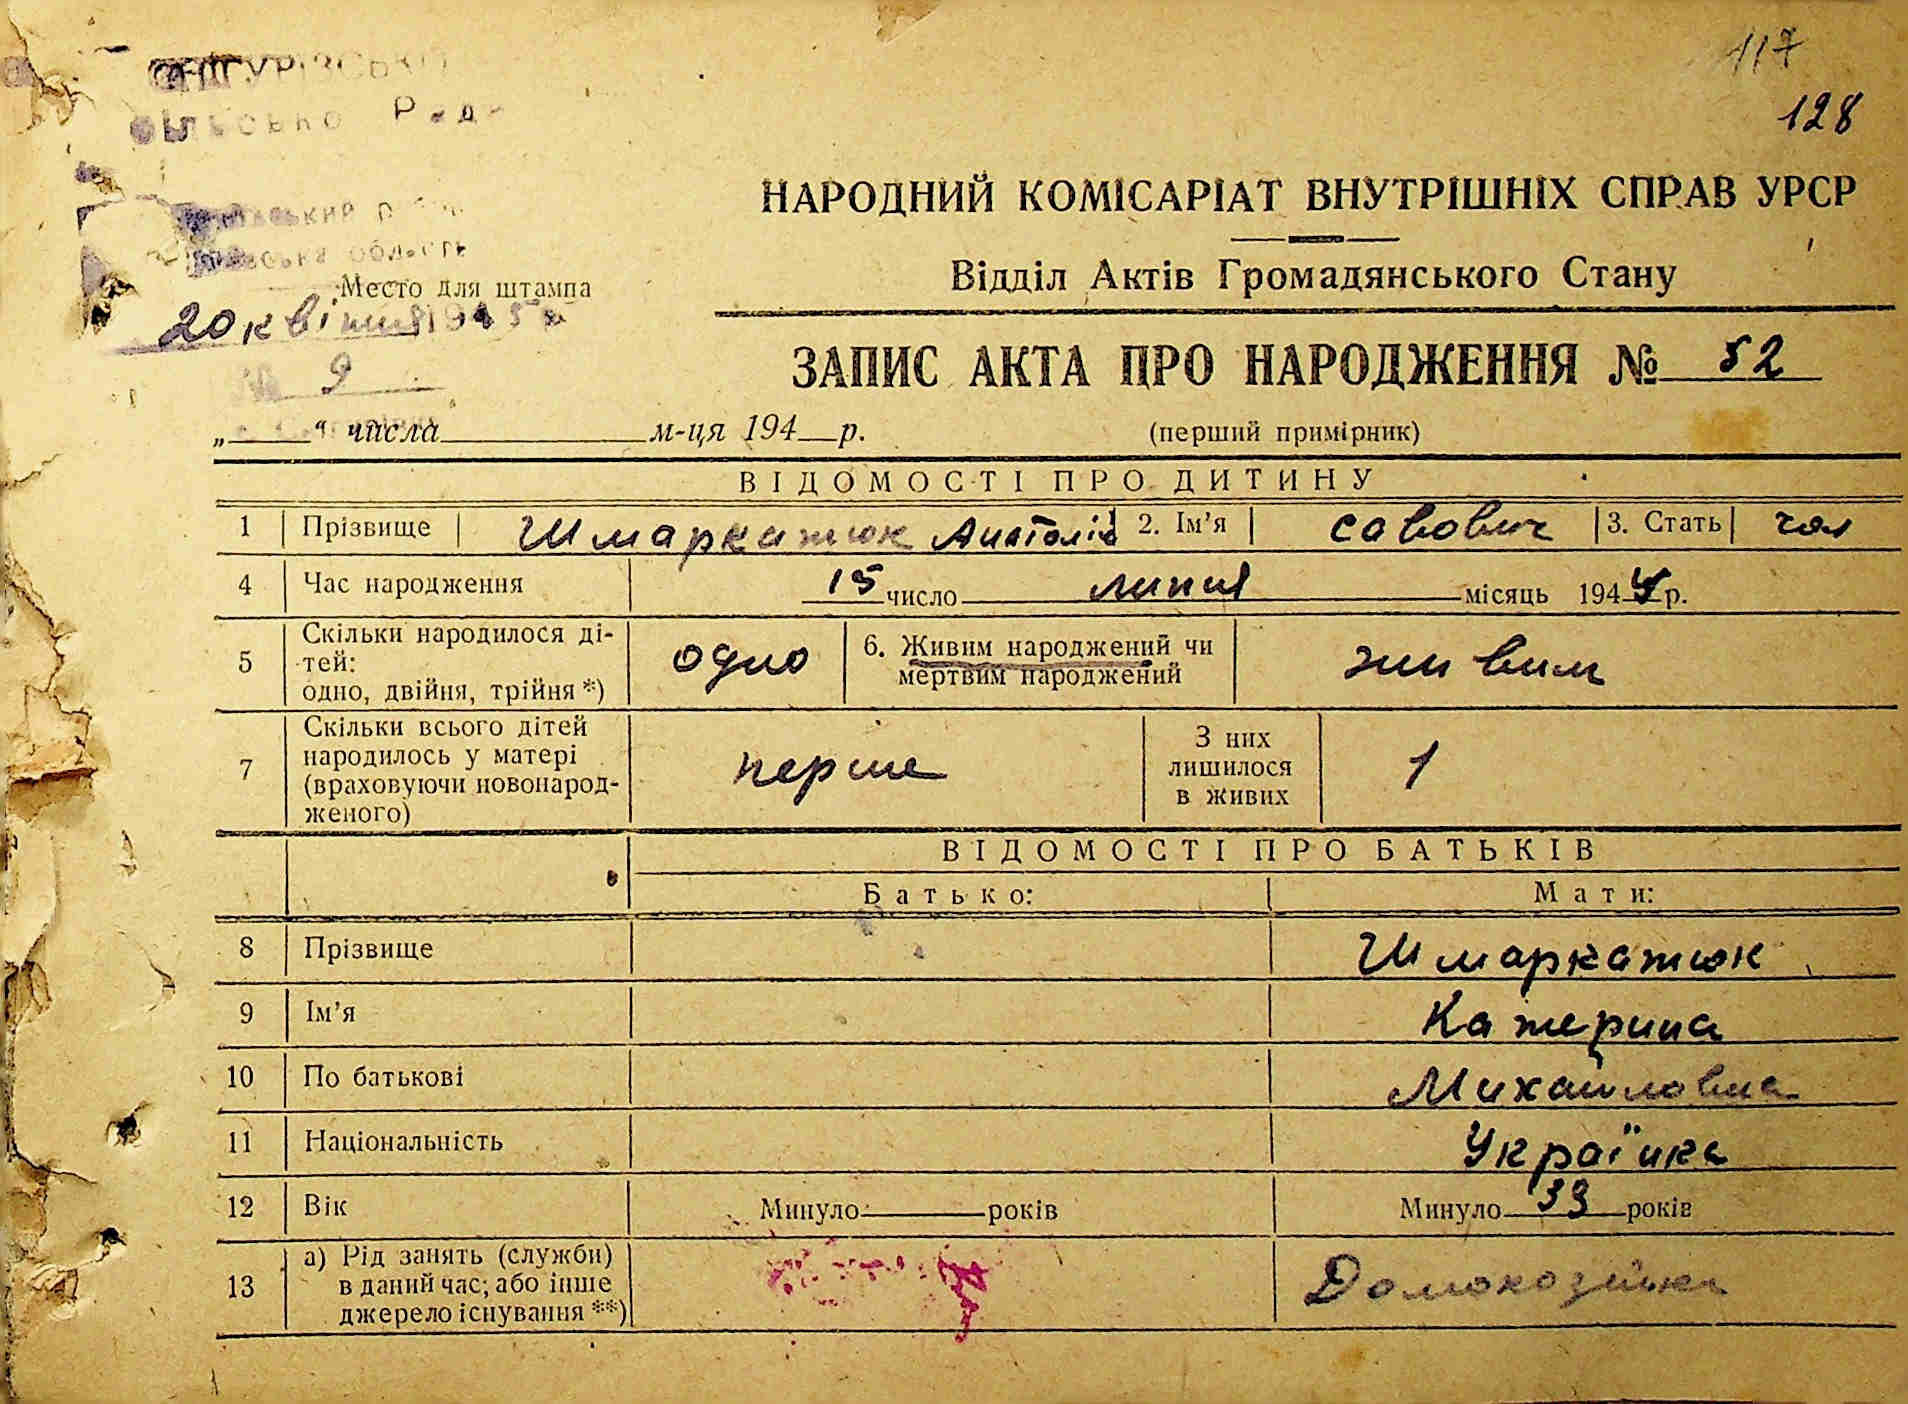 117
128
Рад
область
НАРОДНИЙ КОМІСАРІАТ ВНУТРІШНІХ СПРАВ УРСР
Відділ Актів Громадянського Стану
Место для штампа
20 квітня 1945 р
№ 9
ЗАПИС АКТА ПРО НАРОДЖЕННЯ № 52
„ “ числа м-ця 194 р.
(перший примірник)
ВІДОМОСТІ ПРО ДИТИНУ
1 Прізвище Шмаркатюк Анатолій 2. Ім’я савович 3. Стать чол
4 Час народження 15 число липня місяць 1944 р.
5 Скільки народилося ді-
тей:
одно, двійня, трійня *) одно 6. Живим народжений чи
мертвим народжений живим
7 Скільки всього дітей
народилось у матері
(враховуючи новонарод-
женого) перше З них
лишилося
в живих 1
ВІДОМОСТІ ПРО БАТЬКІВ
Батько: Мати:
8 Прізвище Шмаркатюк
9 Ім’я Катерина
10 По батькові Михайловна
11 Національність Українка
12 Вік Минуло років Минуло 33 років
13 а) Рід занять (служби)
в даний час; або інше
джерело існування **) Домохозяйка